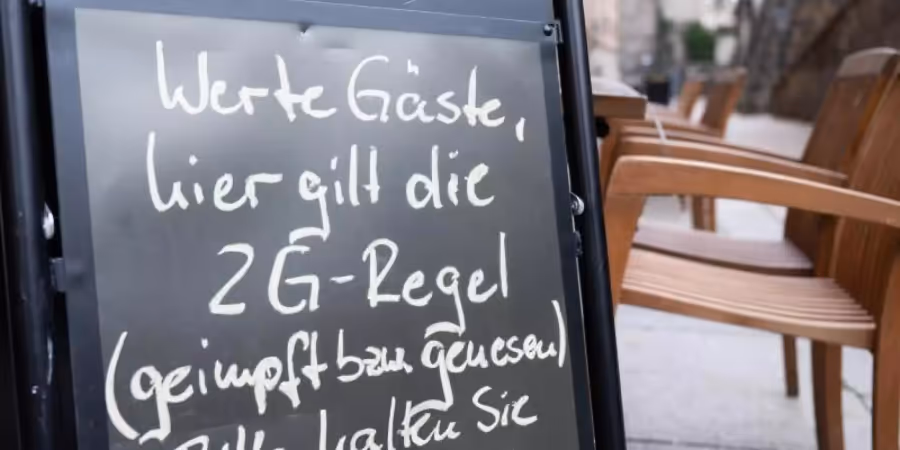 Werte Gäste,
hier gilt die
2G-Regel
(geimpft bzw. genesen)
Bitte halten Sie